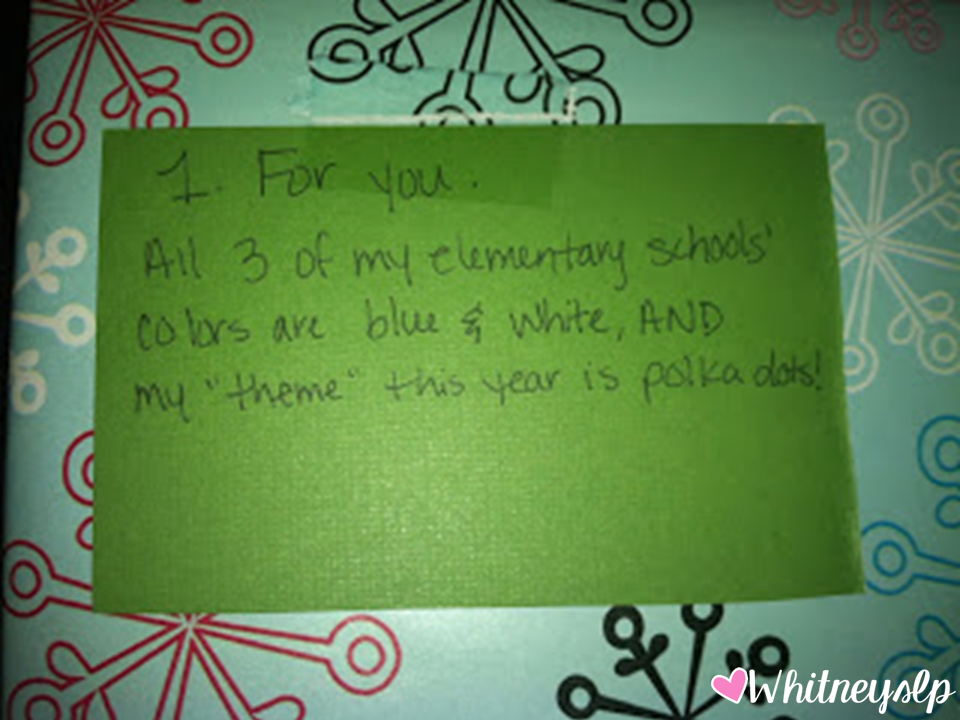 1. For you.
All 3 of my elementary schools'
colors are blue & white, AND
my "theme" this year is polka dots!
Whitneyslp